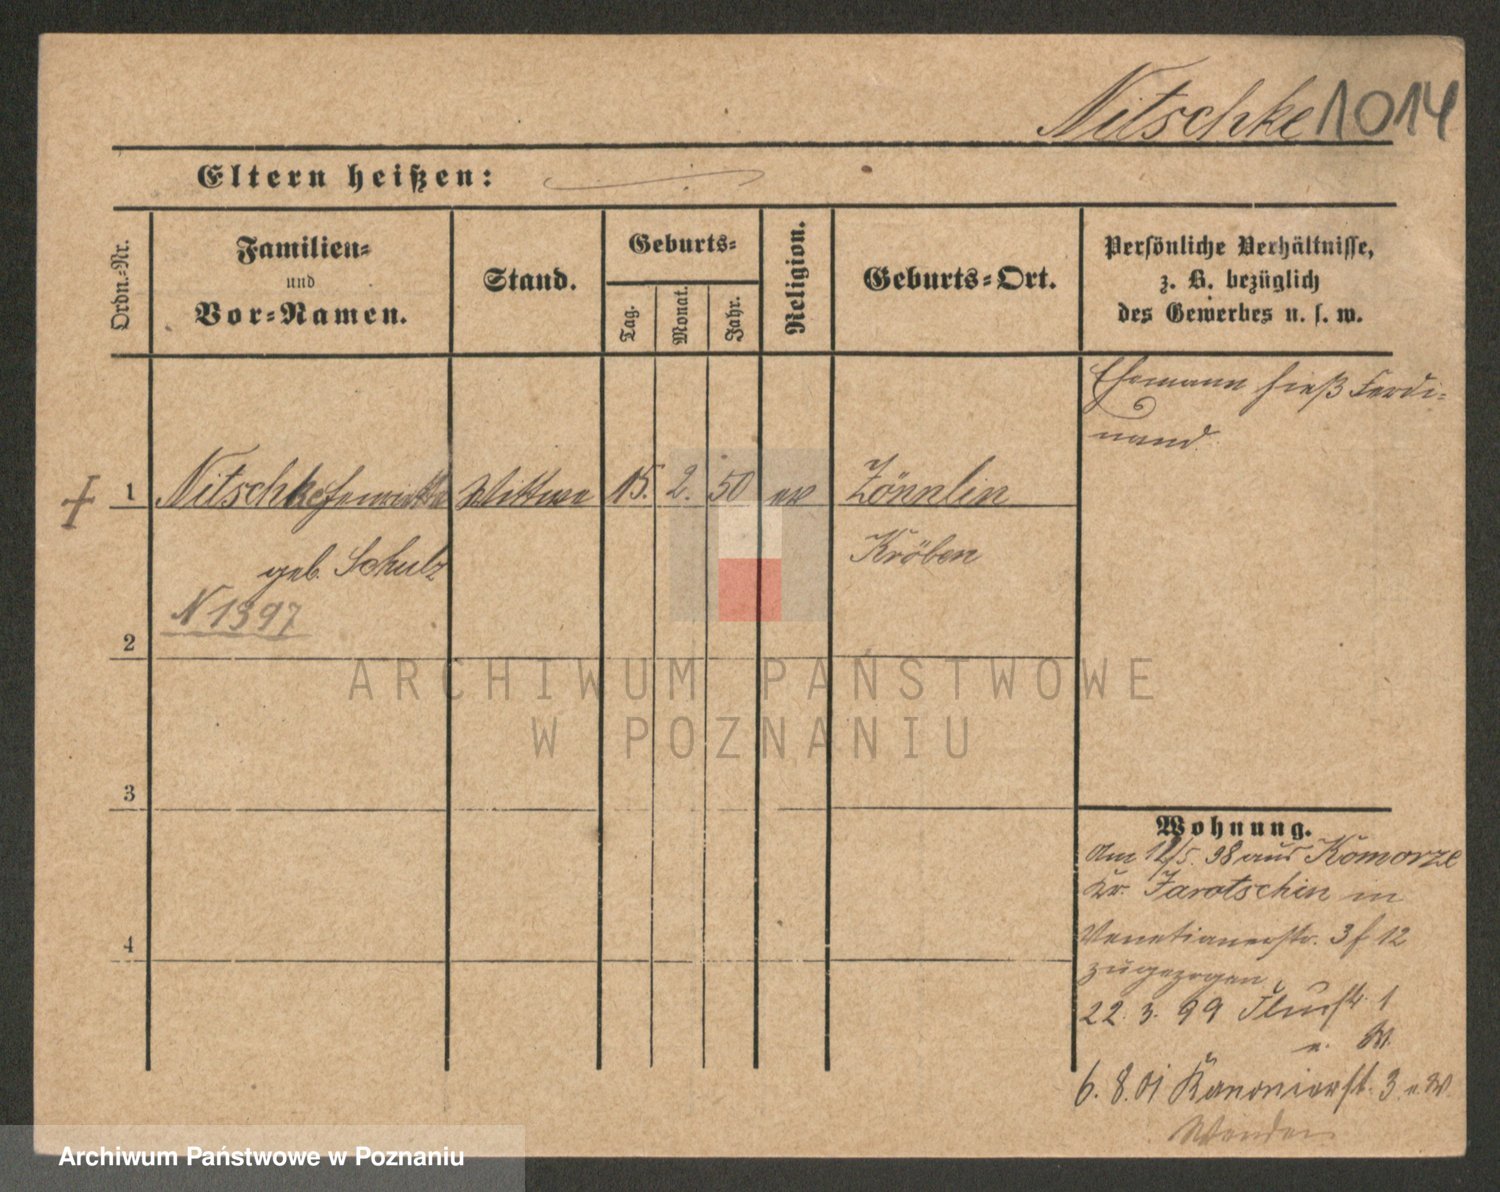 Nitschke 1014
Eltern heißen:
Ordn.-Nr.
Familien-
und
Vor-Namen.
Stand.
Geburts-
Tag.
Monat.
Jahr.
Religion.
Geburts-Ort.
Persönliche Verhältnisse,
z. B. bezüglich
des Gewerbes u. s. w.
Ehemann hieß Ferdi-
nand
1 Nitschke Henriette Wittwe 15. 2. 50 ev Zönnlin
geb. Schulz Kröben
N 1397
2
3
4
Wohnung.
Am 12/5. 98 aus Komorze
Kr. Jarotschin in
Venetianerstr. 3 f 12
zugezogen
22. 3. 99 Flurstr. 1
6. 8. 01 Kanonierstr. 3
Wenden
ARCHIWUM PAŃSTWOWE
W POZNANIU
Archiwum Państwowe w Poznaniu